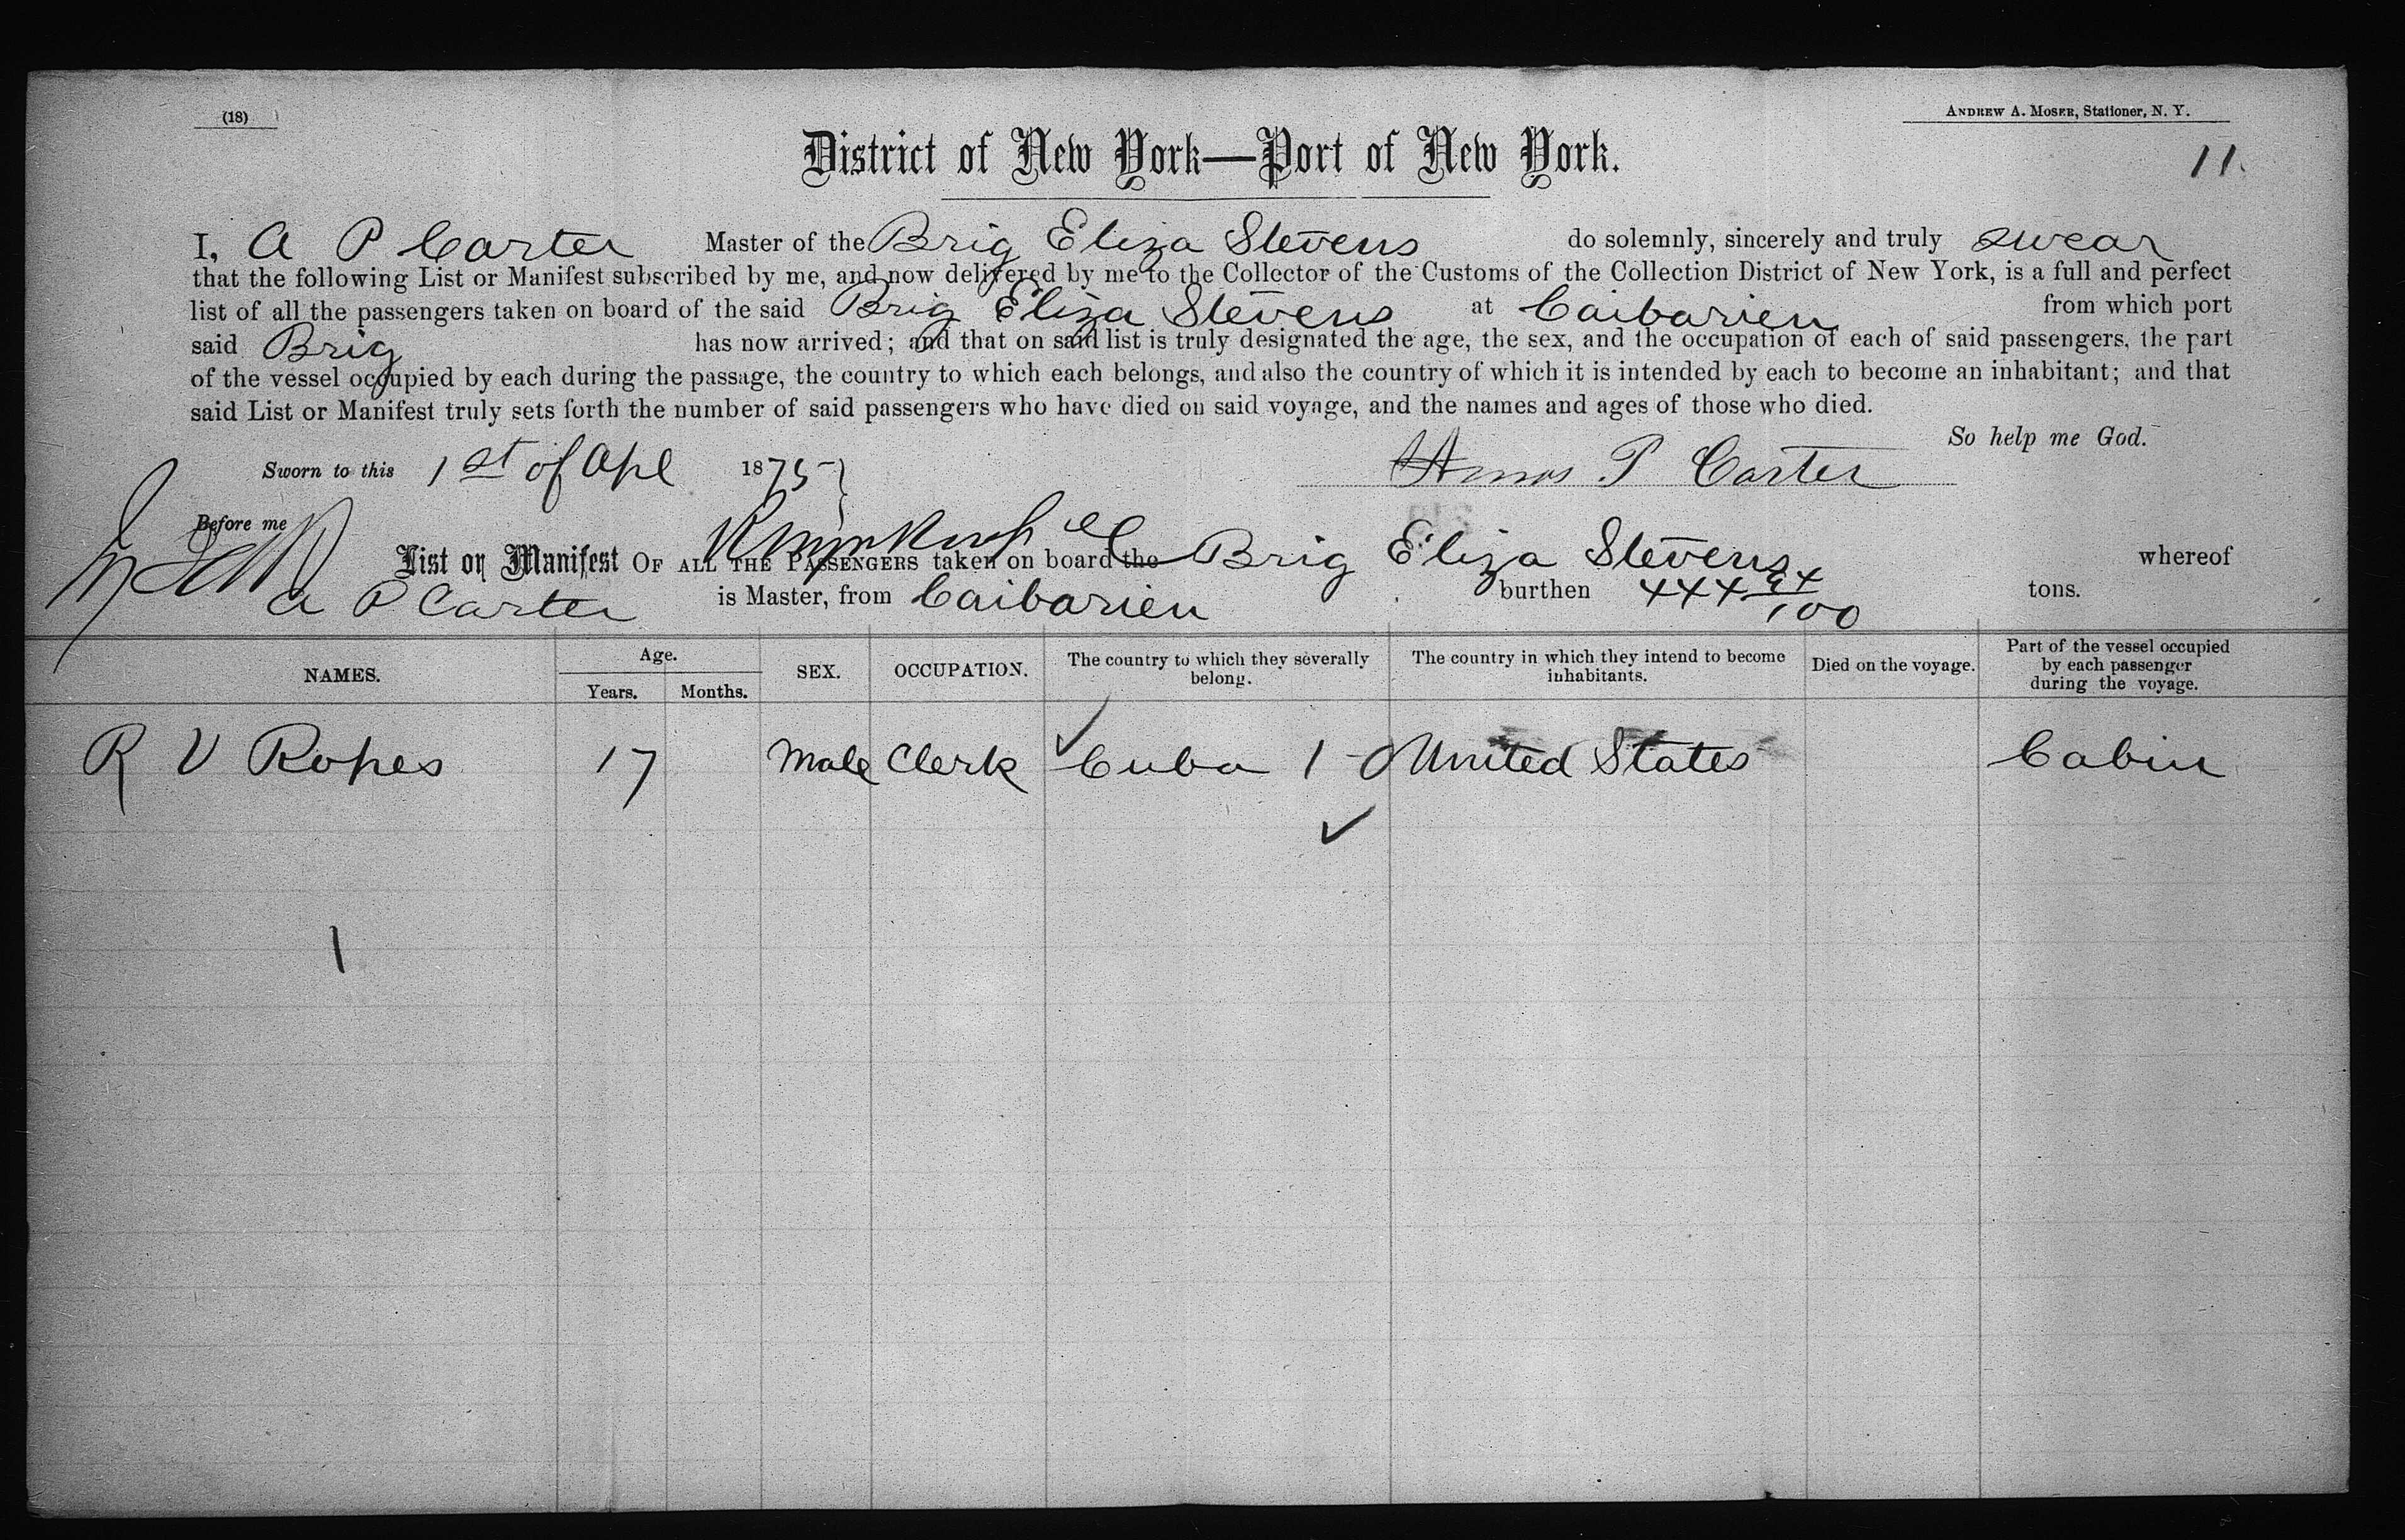 (18)
ANDREW A. MOSER, Stationer, N. Y.
District of New York—Port of New York.
11
I, A P Carter Master of the Brig Eliza Stevens do solemnly, sincerely and truly swear
that the following List or Manifest subscribed by me, and now delivered by me to the Collector of the Customs of the Collection District of New York, is a full and perfect
list of all the passengers taken on board of the said Brig Eliza Stevens at Caibarien from which port
said Brig has now arrived; and that on said list is truly designated the age, the sex, and the occupation of each of said passengers, the part
of the vessel occupied by each during the passage, the country to which each belongs, and also the country of which it is intended by each to become an inhabitant; and that
said List or Manifest truly sets forth the number of said passengers who have died on said voyage, and the names and ages of those who died.
So help me God.
Sworn to this 1st of Apl 1875 Amos P Carter
Before me
List or Manifest OF ALL THE PASSENGERS taken on board the Brig Eliza Stevens whereof
A P Carter is Master, from Caibarien burthen 444 94/100 tons.
NAMES. Age. Years. Months. SEX. OCCUPATION. The country to which they severally belong. The country in which they intend to become inhabitants. Died on the voyage. Part of the vessel occupied by each passenger during the voyage.
R V Ropes 17 Male Clerk Cuba 1 United States Cabin
1